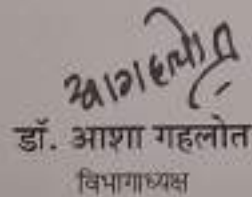 डॉ. आशा गहलोत
विभागाध्यक्ष